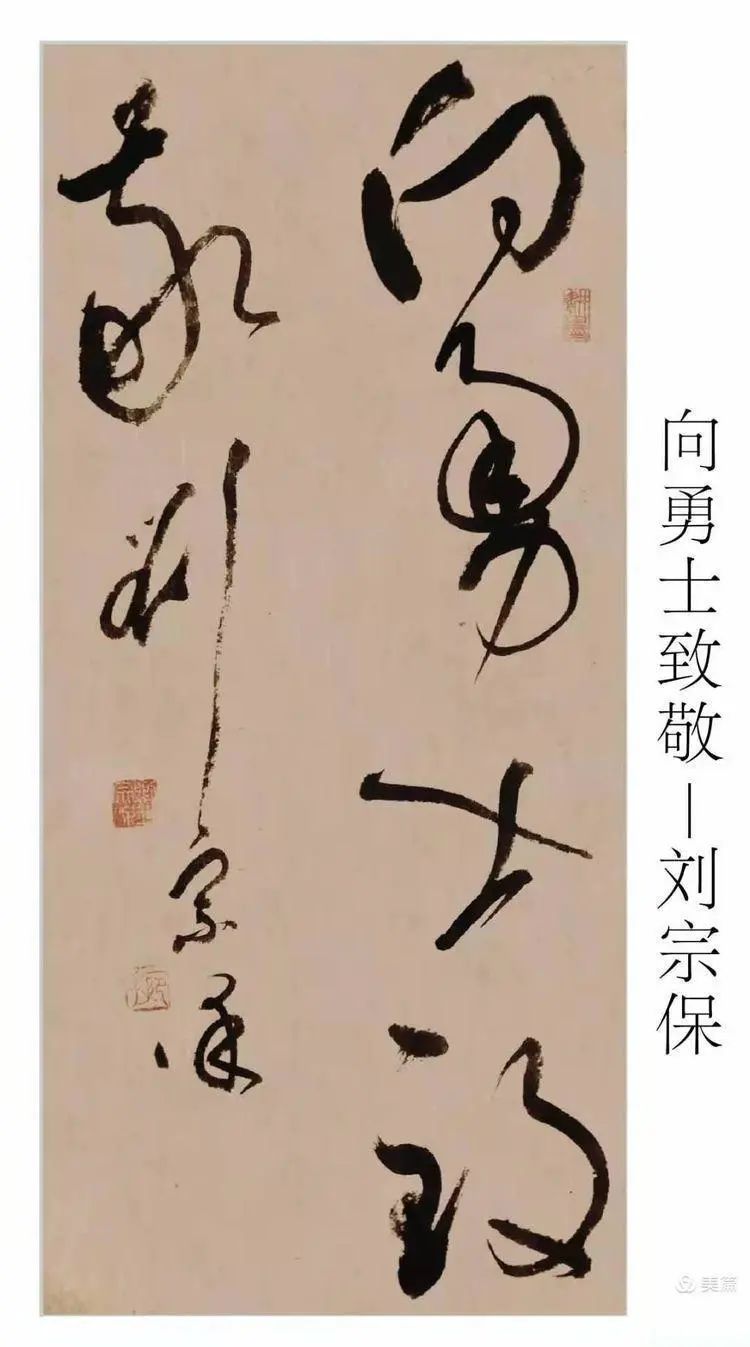 向勇士致
敬 刘宗保
向勇士致敬—刘宗保
美篇